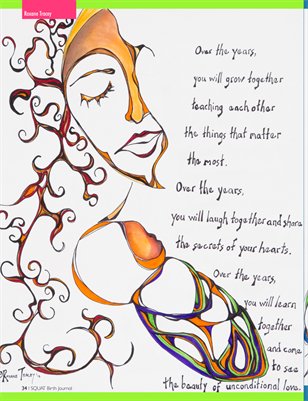 Roxane Tracey
Over the years,
you will grow together
teaching each other
the things that matter
the most.
Over the years,
you will laugh together and share
the secrets of your hearts.
Over the years,
you will learn
together
and come
to see
the beauty of unconditional love.
34 | SQUAT Birth Journal